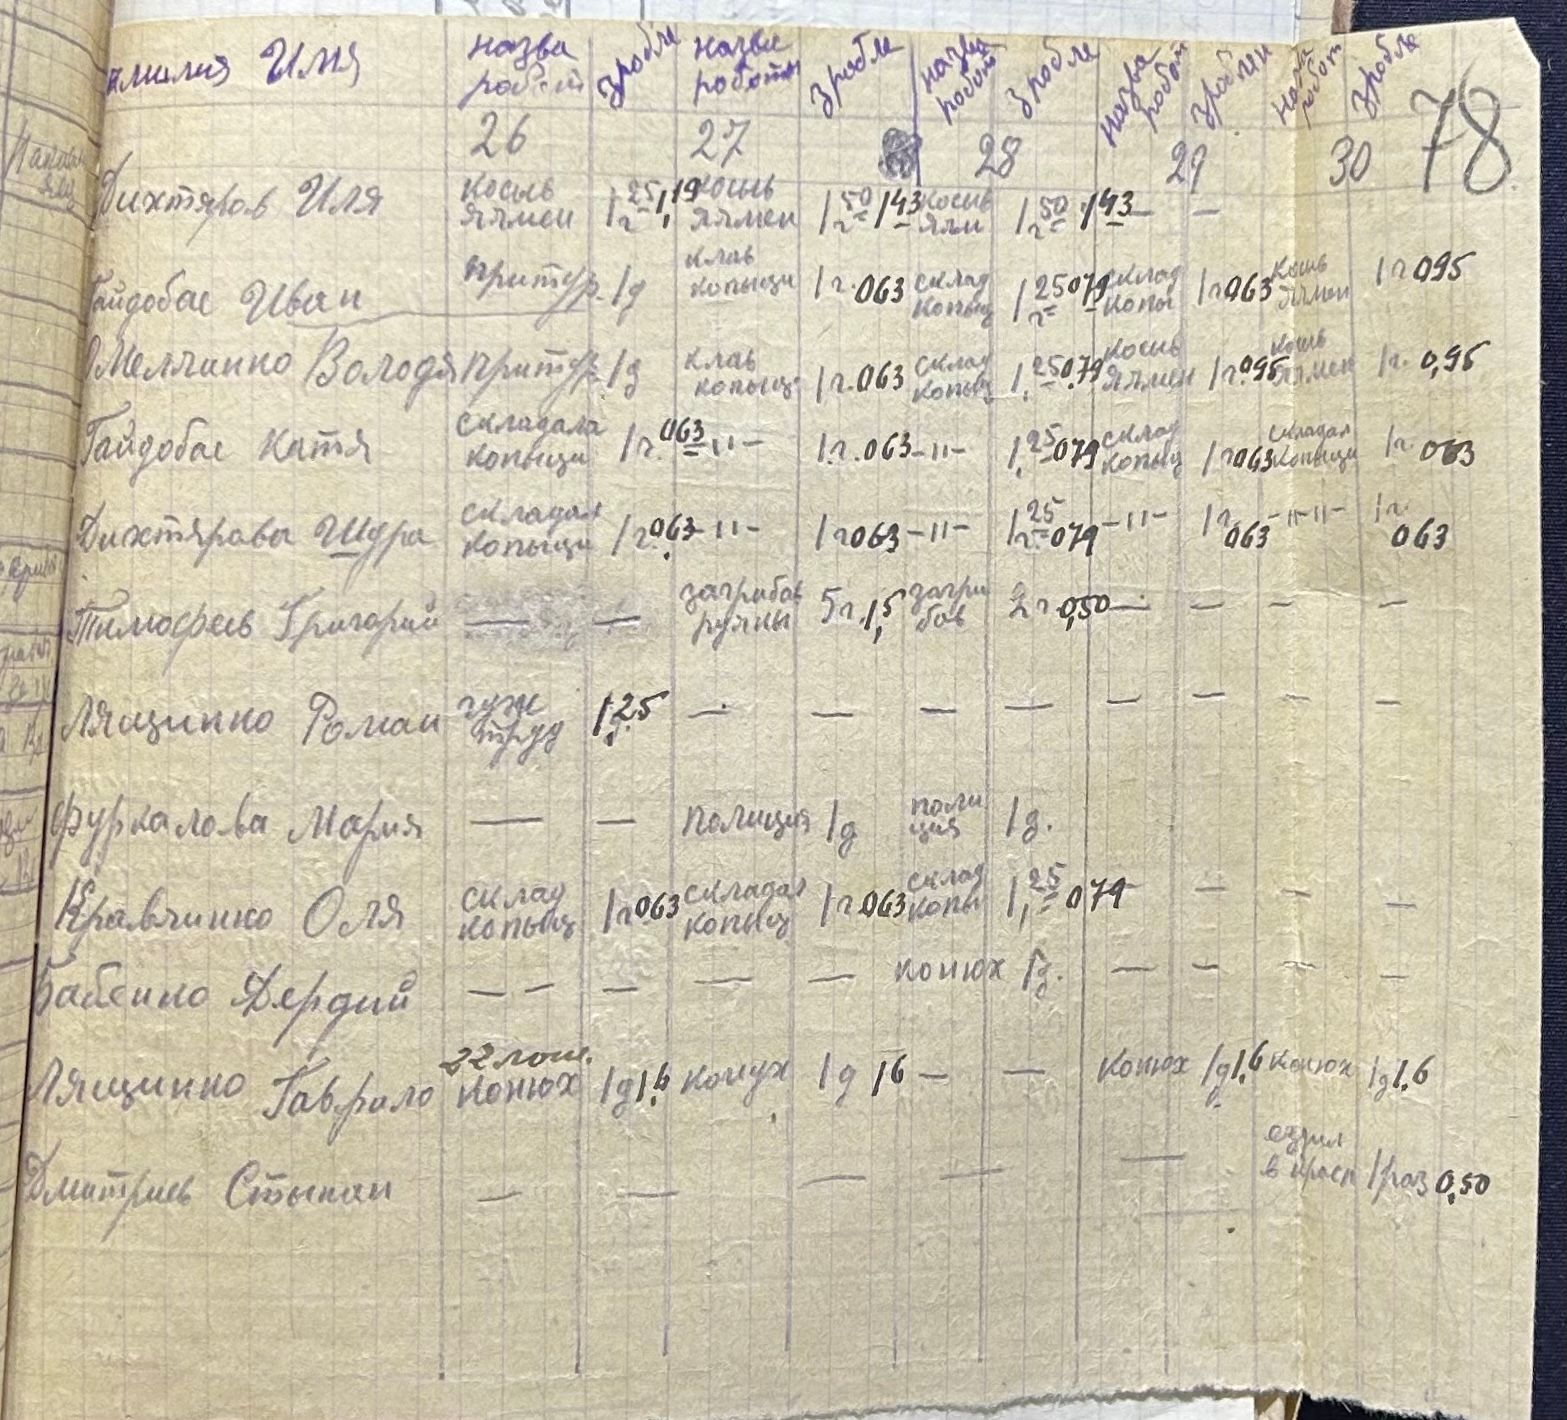 амилия Имя назва робот зробле назва роботы зробле назва робот зробле назва робот зроблен назва робот зробле 78
26 27 28 29 30
Дихтяров Иля косыв ячмен 1 25 г 1,19 косыв ячмен 1 50 г 143 косыв ячм 1 50 г 143 — —
Гайдобас Иван притур. 1д клав копыци 1г. 063 склад копыц 1 25 г 079 склад копы 1г 063 косыв ячмен 1г 095
Омелчинко Володя притур 1д клав копыци 1г. 063 склад копыц 1, 25 079 косыв ячмен 1г 095 косыв ячмен 1г. 0,95
Гайдобас Катя складала копыци 1г. 063 -"- 1г. 063 -"- 1, 25 079 склад копыц 1г 063 складал копыци 1г 063
Дихтярова Шура складал копыци 1г. 063 -"- 1г 063 -"- 1 25 г 079 -"- 1г. 063 -"-"- 1г. 063
Тимофеев Григорий — — загрибав ручны 5г. 1,5 загри бав 2г 0,50 — — — —
Лящинко Роман гуж труд 1,25 — — — — — — — —
Фуркалова Мария — — полиция 1д поли ция 1д.
Кравчинко Оля склад копыц 1г 063 складал копыц 1г 063 склад копы 1, 25 079 — — — —
Бабенко Дердий — — — — — конюх 1д. — — — —
22 лош.
Лящинко Гаврило конюх 1д 1,6 конух 1д 16 — — конюх 1д 1,6 конюх 1д 1,6
Дмитриев Стыпан — — — — — издил в 1раз 0,50